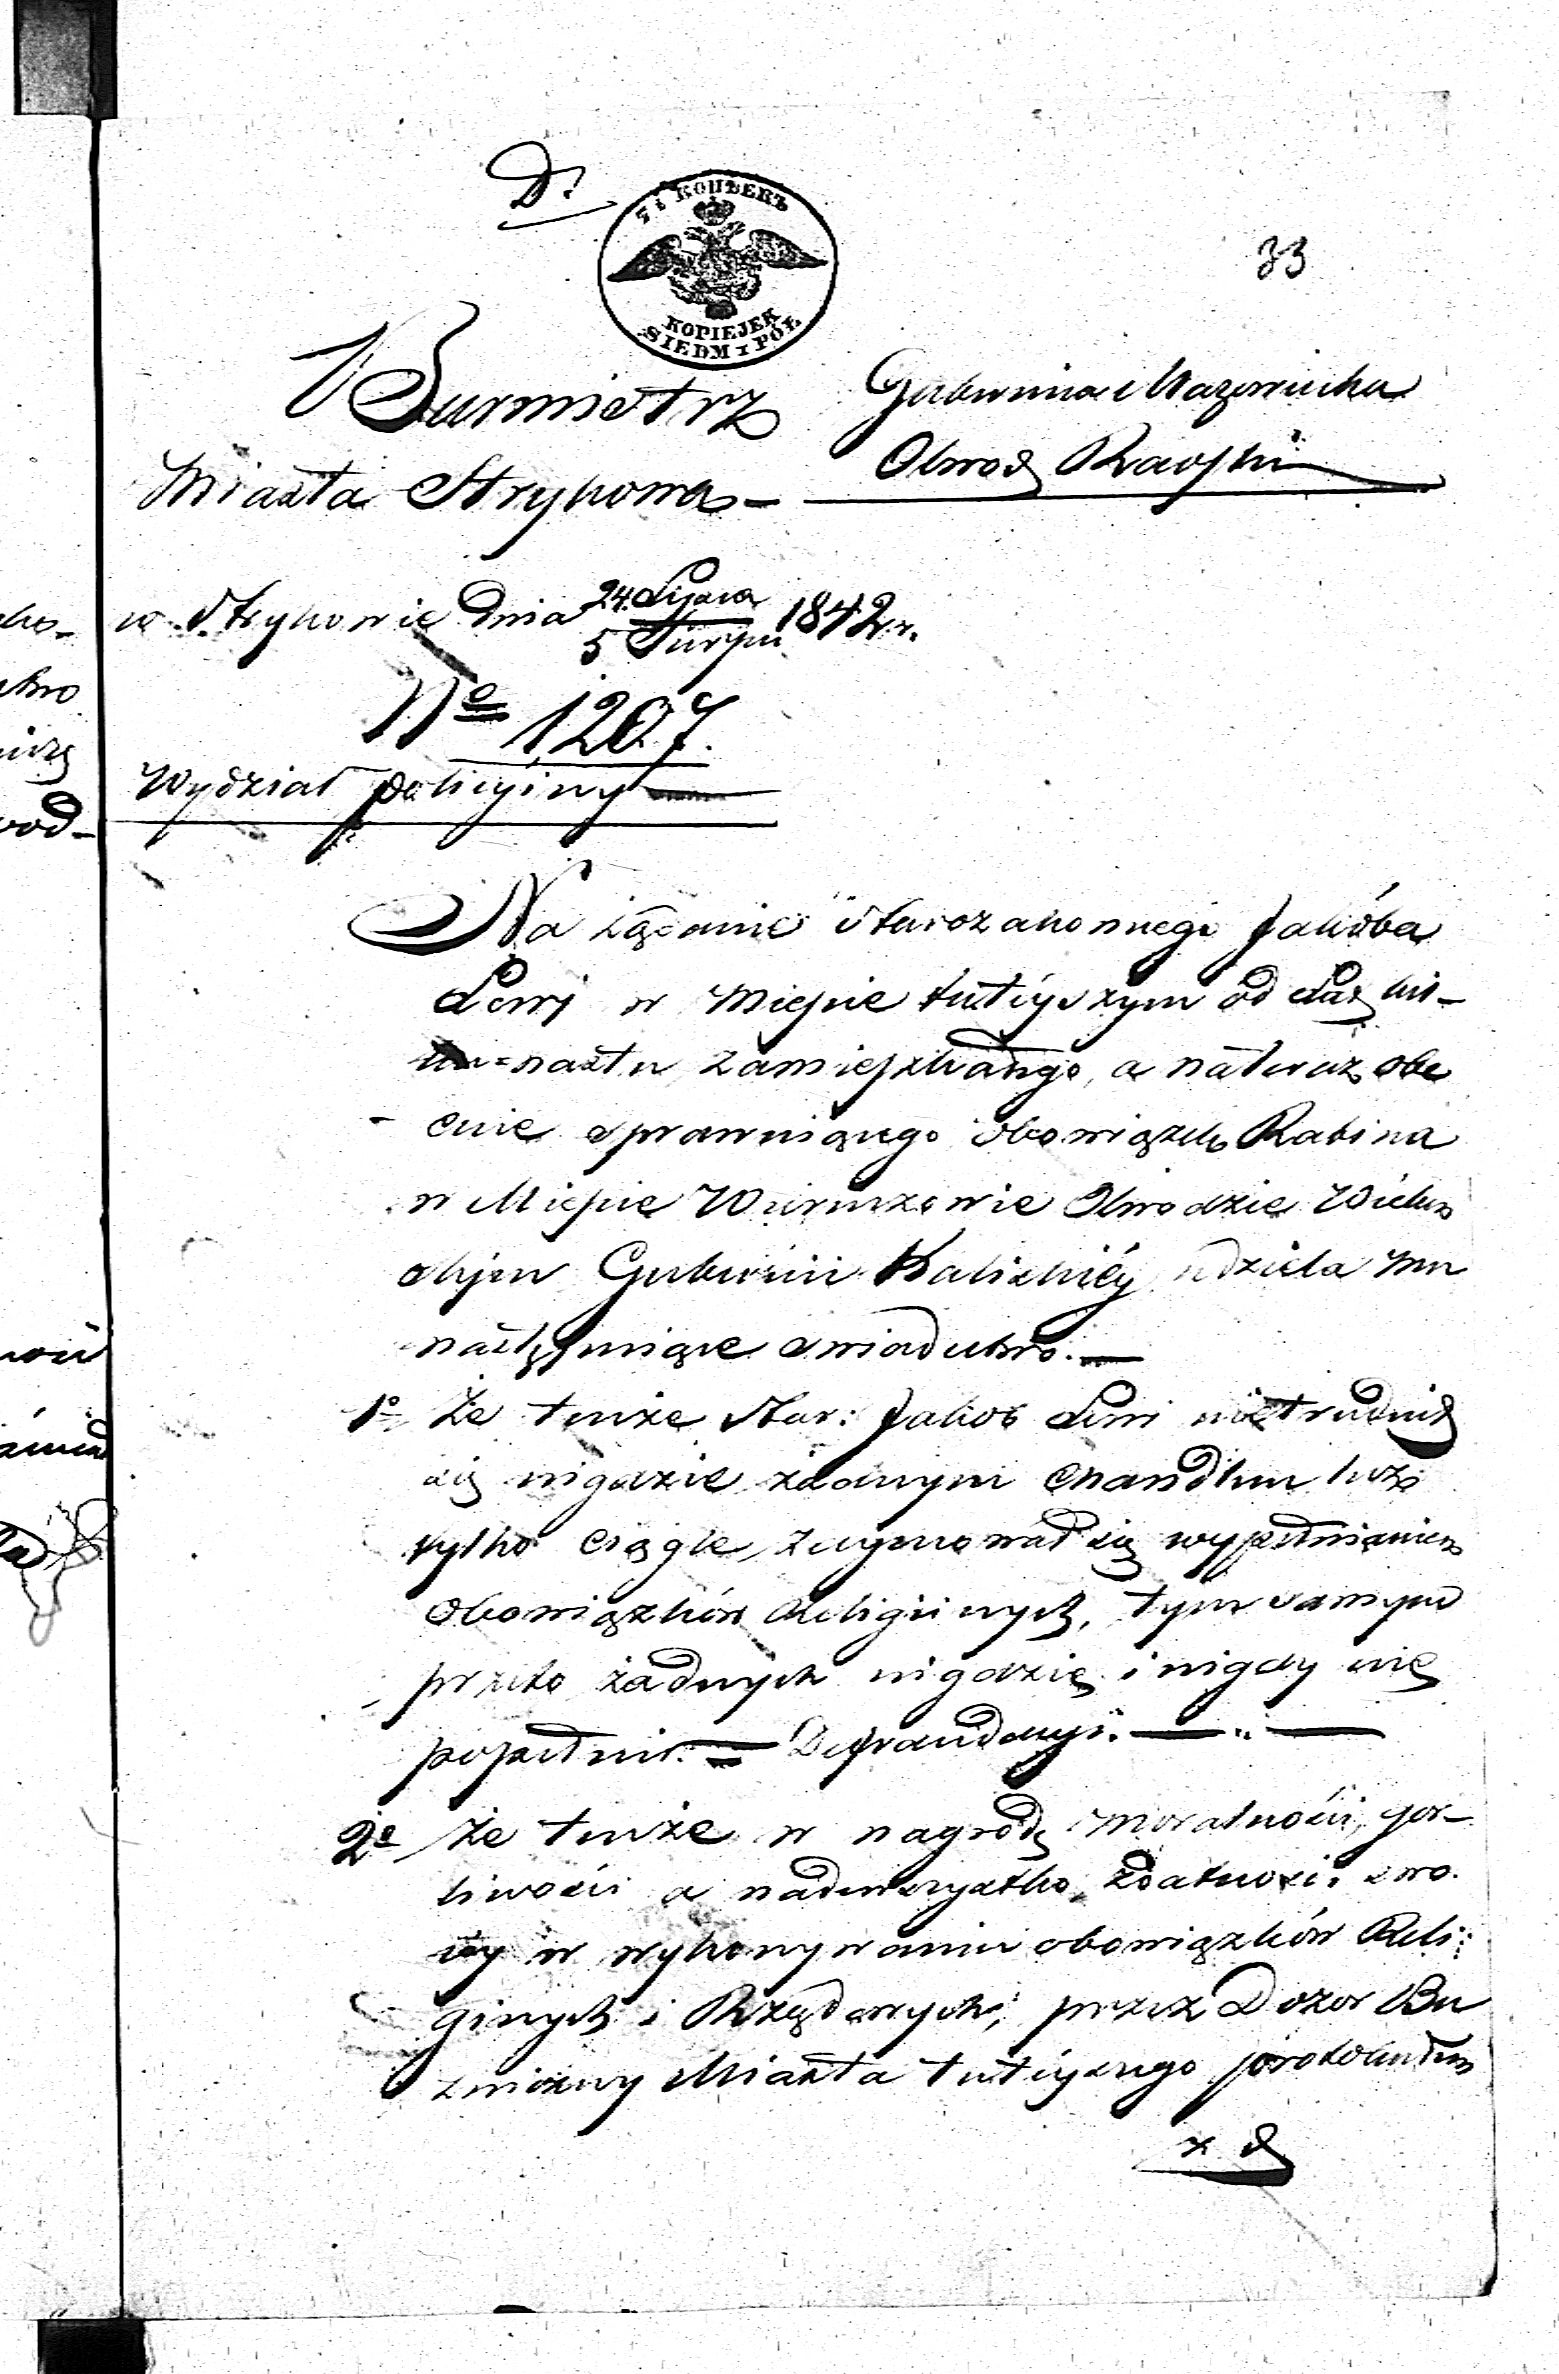 D.
7½ КОПѢЕКЪ
KOPIEJEK
SIEDM I PÓŁ
33
Burmistrz
Miasta Strykowa
Gubernia Mazowiecka
Obwod Rawski
w Strykowie dnia 24 Lipca / 5 Sierpn 1842 r.
No 1207.
Wydział Policyiny
Na żądanie Starozakonnego Jakóba
Lewi w Mieście tuteyszym od lat kil-
=nastu zamieszkałego, a na teraz obe
cnie sprawuiącego obowiązek Rabina
w Mieście Wieruszowie Obwodzie Wieluń
skim Gubernii Kaliskiéy udziela mu
następuiące swiadectwo.
1o Że tenże Star: Jakob Lewi nietrudnił
się nigdzie żadnym chandlem lecz
tylko ciągle zaymował się wypełnianiem
obowiązków Religiinych, tym samym
przeto żadnych nigdzie i nigdy nie
popełnił. Defraudacyi.
2o Że tenże w nagrodę moralności, gor-
liwości a nadewszystko zdatności swo
iey w wykonywaniu obowiązków Reli:
giinych i Rządowych, przez Dozor Bu
zniczny Miasta tuteyszego protokułem